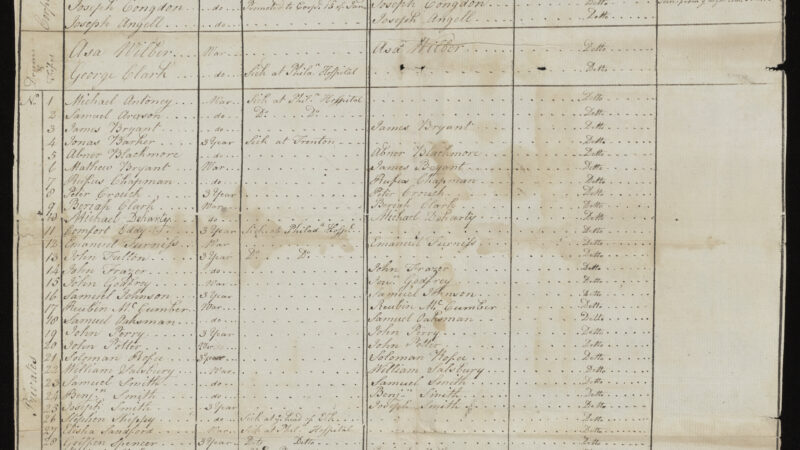 Joseph Congdon do Promoted to Corpl 15 of Joseph Congdon Detto
Joseph Angell do Joseph Angell Detto
Asa Wilber War Asa Wilber Detto
George Clark do Sick at Phila Hospital Detto
No 1 Michael Antoney War Sick at Phil. Hospital Detto
2 Samuel do Do Do Detto
3 James Bryant do James Bryant Detto
4 Jonas Barker 3 Year Sick at Trenton Detto
5 Abner Blackmore do Abner Blackmore Detto
6 Mathew Bryant War James Bryant Detto
7 Rufus Chapman do Rufus Chapman Detto
8 Peter Crouch 3 Year Peter Crouch Detto
9 Beriah Clark War Beriah Clark Detto
10 Michael Deharty do Michael Deharty Detto
11 Comfort Eddy 3 Year Sick at Philada Hospl. Detto
12 Emanuel Furniss War Emanuel Furniss Detto
13 John Fulton 3 Year Do Do Detto
14 John Frazer do John Frazer Detto
15 John Godfrey War Godfrey Detto
16 Samuel Johnson 3 Year Samuel Johnson Detto
17 Reubin Mc Cumber War Reubin Mc Cumber Detto
18 Samuel Oaksman do Samuel Oaksman Detto
19 John Perry 3 Year John Perry Detto
20 John Potter War John Potter Detto
21 Soloman 3 year Soloman Detto
22 William Salsbury War William Salsbury Detto
23 Samuel Smith do Samuel Smith Detto
24 Benj. Smith do Benj. Smith Detto
25 Joseph Smith 3 Year Joseph Smith Detto
26 Stephen Shippy do Sick at head of Elk Detto
27 Elisha Sandford War Sick at Phil. Hospital Detto
28 Griffen Spencer 3 Year Do Detto Detto
Privates